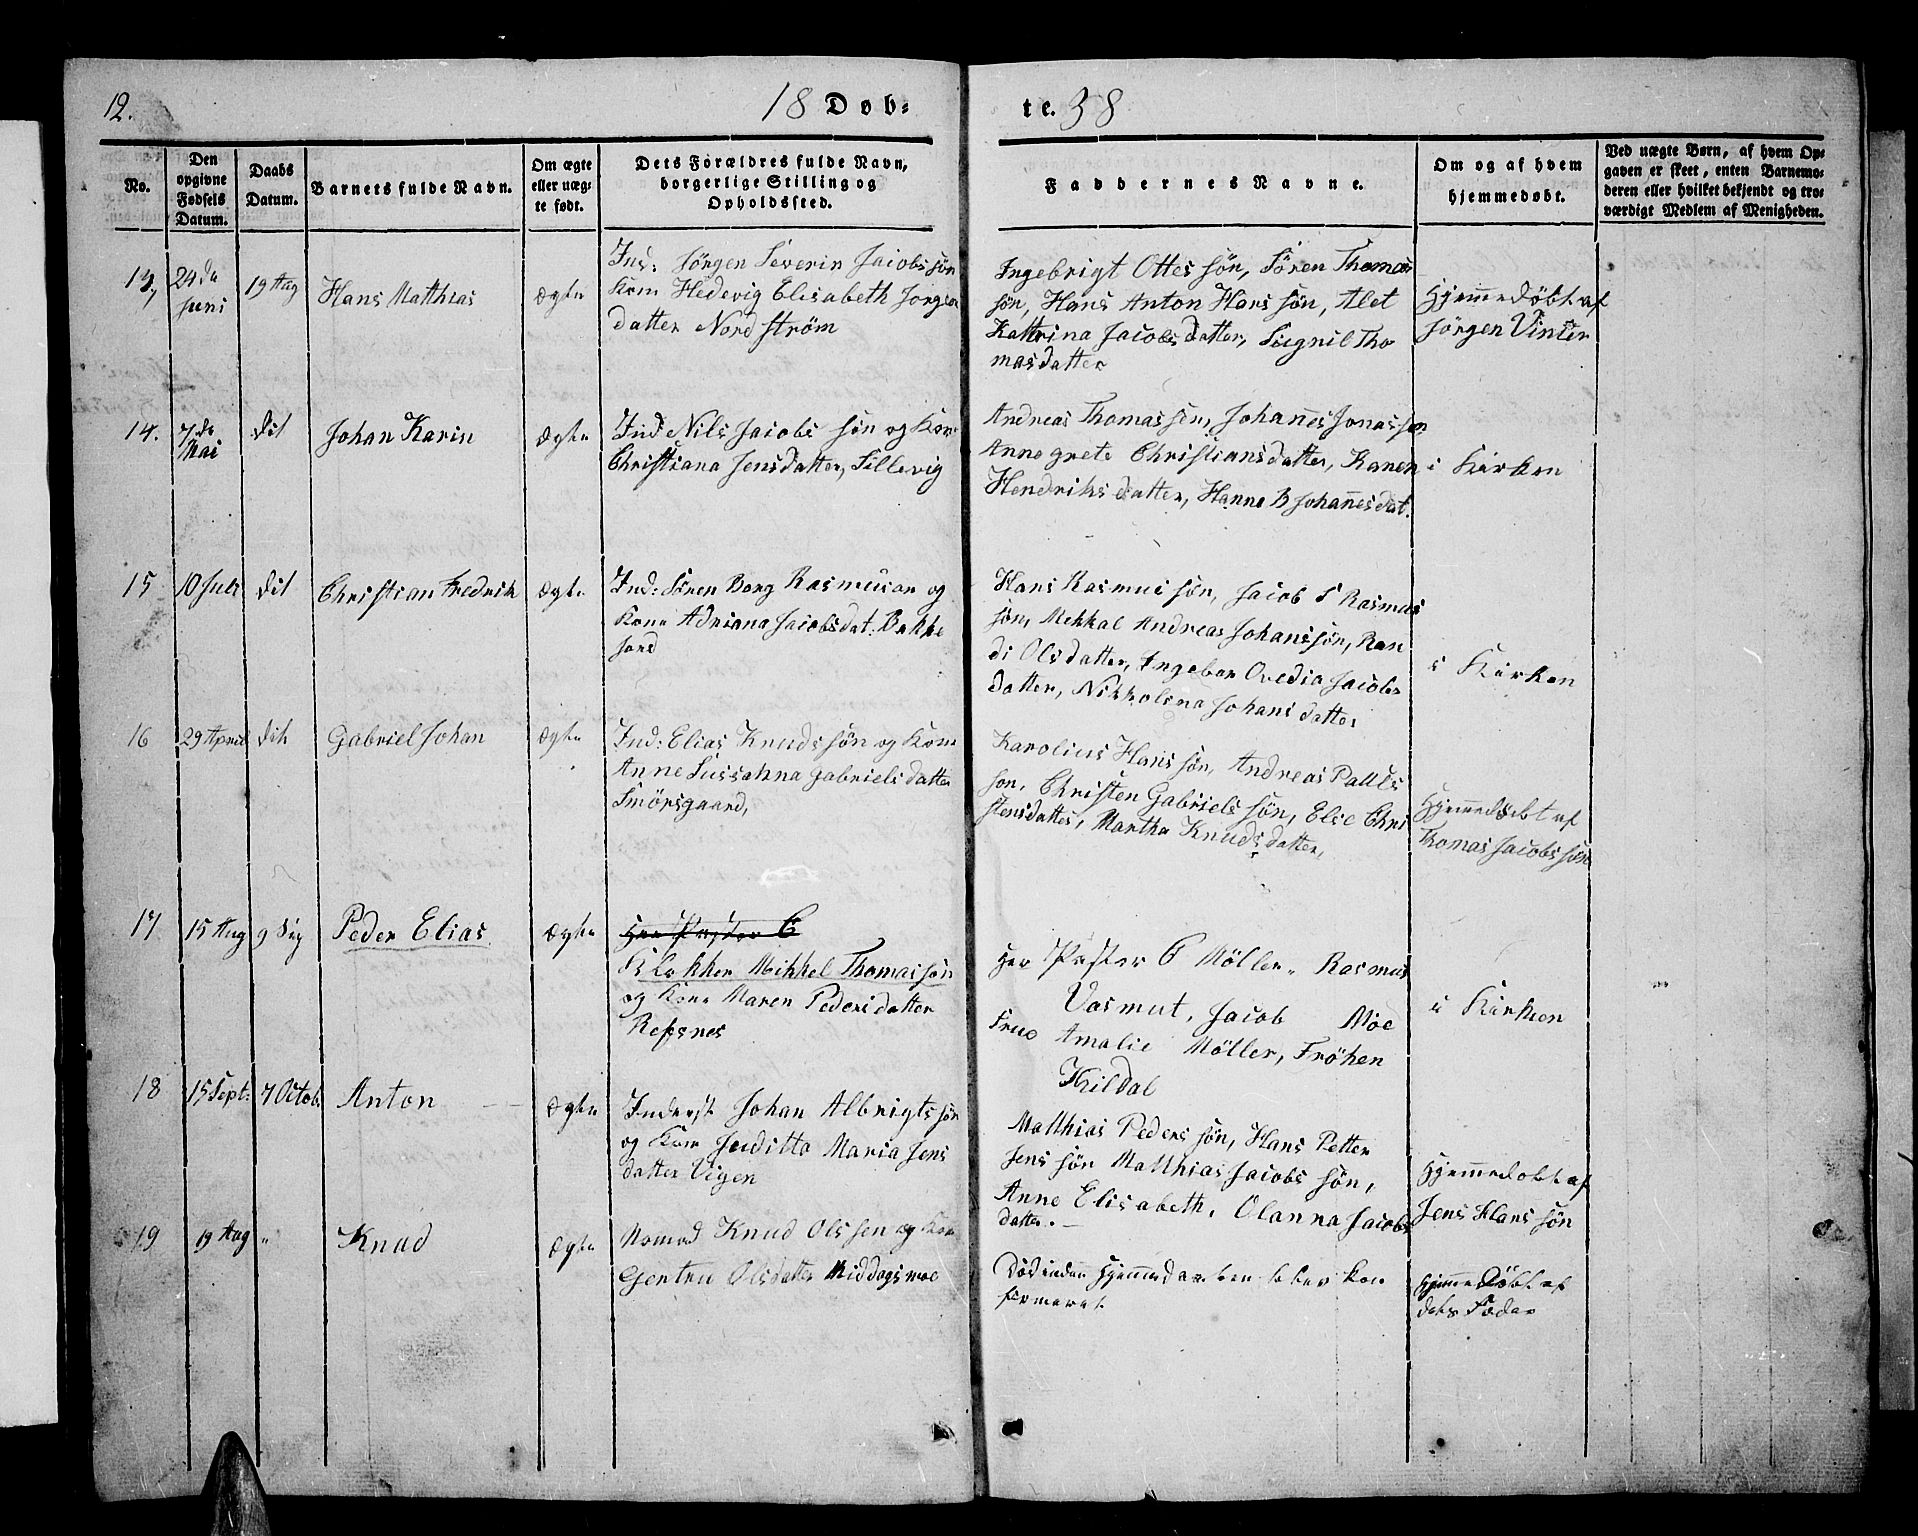 12.
18 Døb=
te. 38
No.
Den
opgivne
Fødsels
Datum.
Daabs
Datum.
Barnets fulde Navn.
Om ægte
eller uæg-
te født.
Dets Forældres fulde Navn,
borgerlige Stilling og
Opholdssted.
Faddernes Navne.
Om og af hvem
hjemmedøbt.
Ved uægte Børn, af hvem Op-
gaven er skeet, enten Barnemo-
deren eller hvilket bekjendt og tro-
værdigt Medlem af Menigheden.
13,
24 de
Juni
19 Aug
Hans Matthias
Ægte
Ind: Jörgen Severin Jacobssön
Kone Hedevig Elisabeth Jörgen
datter Nordström
Ingebrigt Ottessön, Sören Thomas
sön, Hans Anton Hanssön, Alet
Kathrina Jacobsdatter, Sugnil Tho
masdatter
Hjemmedöbt af
Jörgen Vinter
14.
7 de
Mai
dit
Johan Karin
Ægte
Ind Nils Jacobssön og Kon
Christiana Jensdatter, Sillevig
Andreas Thomassen, Johañes Jonassen
Anne grete Christiansdatter, Karen
Hendriksdatter, Hanne B Johañesdat.
i Kirken
15
10 Juli
dit
Christian Fredrik
Ægte
Ind: Sören Borg Rasmusen og
Kone Adriana Jacobsdat. Bakke
jord
Hans Rasmussön, Jacob S Rasmus
sön, Mekkal Andreas Johanssön, Ran
di Olsdatter, Ingebor Ovedia Jacobs
datter, Nikkolina Johansdatter
i Kirken
16
29 April
dit
Gabriel Johan
Ægte
Ind: Elias Knudssön og Kone
Anne Sussahna Gabrielsdatter
Smörsgaard,
Karolius Hanssön, Andreas Palls
son, Christen Gabrielssön, Else Chri
stensdatter, Martha Knudsdatter,
Hjemmedöbt af
Thomas Jacobssön
17
15 Aug
9 Sep
Peder Elias
Ægte
Her Paster C
Klokker Mikkel Thomassön
og Kone Maren Pedersdatter
Refsnes
Her Paster C Möller, Rasmus
Vasmut, Jacob Moe
Frue Amalie Möller, Fröken
Kildal
i Kirken
18
15 Sept:
7 Octob.
Anton
Ægte
Inderst Johan Albrigtssön
og Kone Juditta Maria Jens
datter Vigen
Matthias Pederssön, Hans Petter
Jenssön Matthias Jacobssön,
Anne Elisabeth, Olanna Jacobs
datter.
Hjemmedöbt af
Jens Hanssön
19
19 Aug
"
Knud
Ægte
Nomad Knud Olssen og Kon
Gertru Olsdatter Middagsmoe
Död inden Hjemmedaaben blev kon
fermeret
Hjemmedöbt af
dets Fader